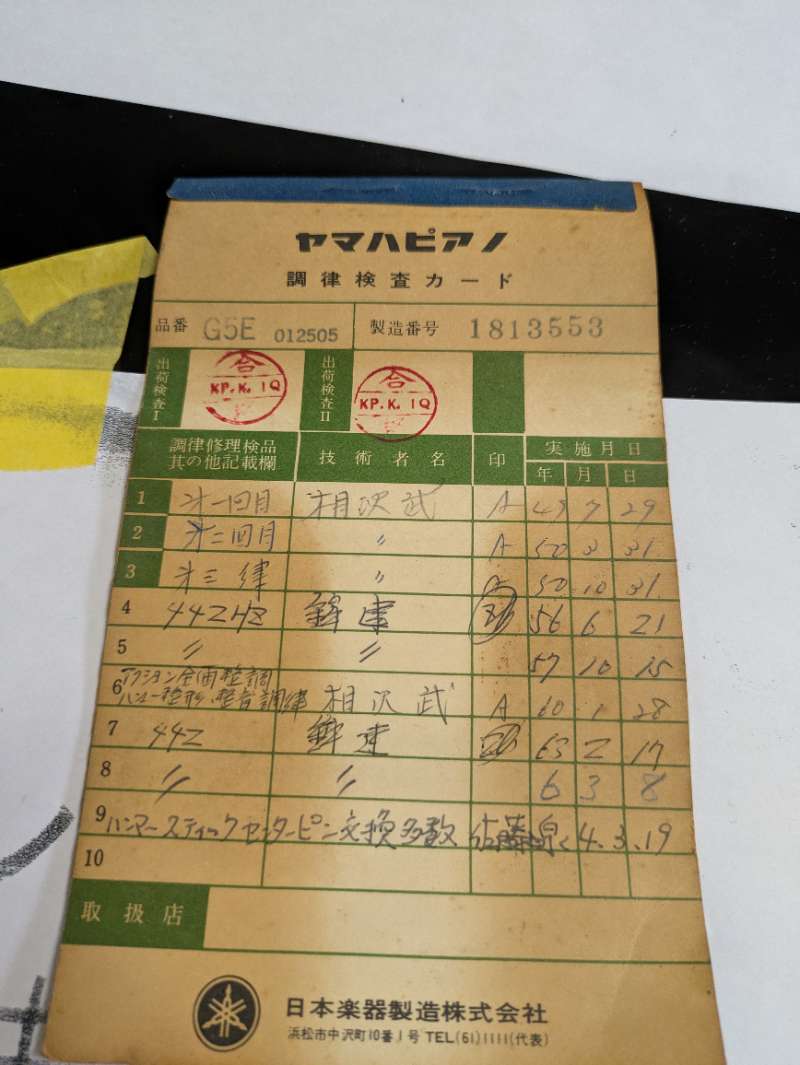 ヤマハピアノ
調律検査カード
品番 G5E 012505 製造番号 1813553
出荷検査I 合 KP.K. IQ 出荷検査II 合 KP.K. IQ
調律修理検品其の他記載欄 技術者名 印 実施月日
年 月 日
1 才一回目 相沢武 A 49 7 29
2 才二回目 〃 A 50 3 31
3 才三律 〃 A 50 10 31
4 442HZ 56 6 21
5 〃 〃 57 10 15
6 アクション全面整調
ハンマー整形、整音調律 相沢武 A 60 1 28
7 442 63 2 17
8 〃 〃 6 3 8
9 ハンマースティックセンターピン交換多数 佐藤泉 4.3.19
10
取扱店
日本楽器製造株式会社
浜松市中沢町10番1号 TEL(61)1111(代表)